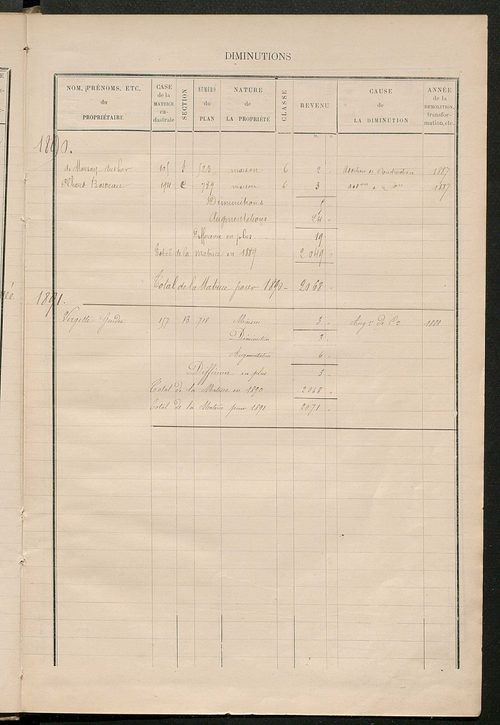 DIMINUTIONS
NOM, PRÉNOMS, ETC. du PROPRIÉTAIRE
CASE de la MATRICE cadastrale
SECTION
NUMÉRO du PLAN
NATURE de LA PROPRIÉTÉ
CLASSE
REVENU
CAUSE de LA DIMINUTION
ANNÉE de la DÉMOLITION, transformation, etc.
1890.
528 maison 6 2 Addition de Construction 1887
789 maison 6 3 1887
Diminutions 5
Augmentations 24
Différence en plus 19
Total de la matrice en 1889 2049
Total de la Matrice pour 1890 2068
1891.
B 718 Maison 3 1888
Diminution 3
Augmentation 6
Différence en plus 3
Total de la Matrice en 1890 2068
Total de la Matrice pour 1891 2071